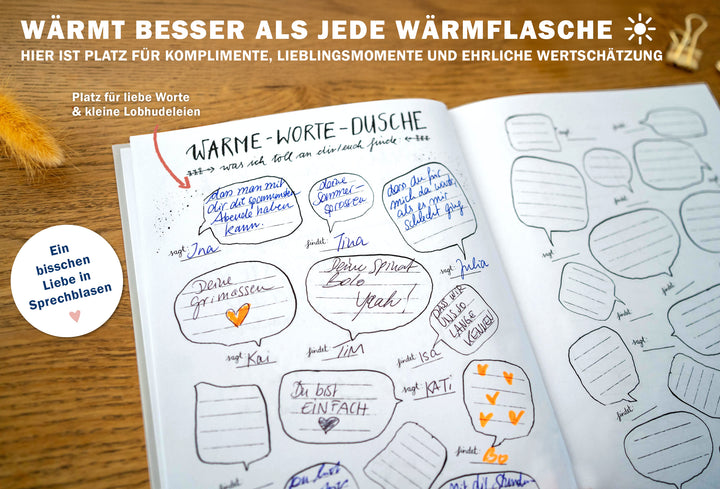 WÄRMT BESSER ALS JEDE WÄRMFLASCHE
HIER IST PLATZ FÜR KOMPLIMENTE, LIEBLINGSMOMENTE UND EHRLICHE WERTSCHÄTZUNG
Platz für liebe Worte
& kleine Lobhudeleien
WARME-WORTE-DUSCHE
was ich toll an dir/euch finde
dass man mit
dir die spannendsten
Abende haben
kann.
sagt: Ina
deine
Sommer-
sprossen
findet: Tina
dass du für
mich da warst,
als es mir
schlecht ging
sagt: Julia
Ein
bisschen
Liebe in
Sprechblasen
Deine
grimassen
sagt: Kai
Deine Spinat
Bolo
Yeah!
findet: TIM
DAS WIR
UNS SO
LANGE
KENNEN
findet: Isa
Du bist
EINFACH
sagt: KATi
findet: Bo
sagt:
findet:
Du bist
mit dir
findet: